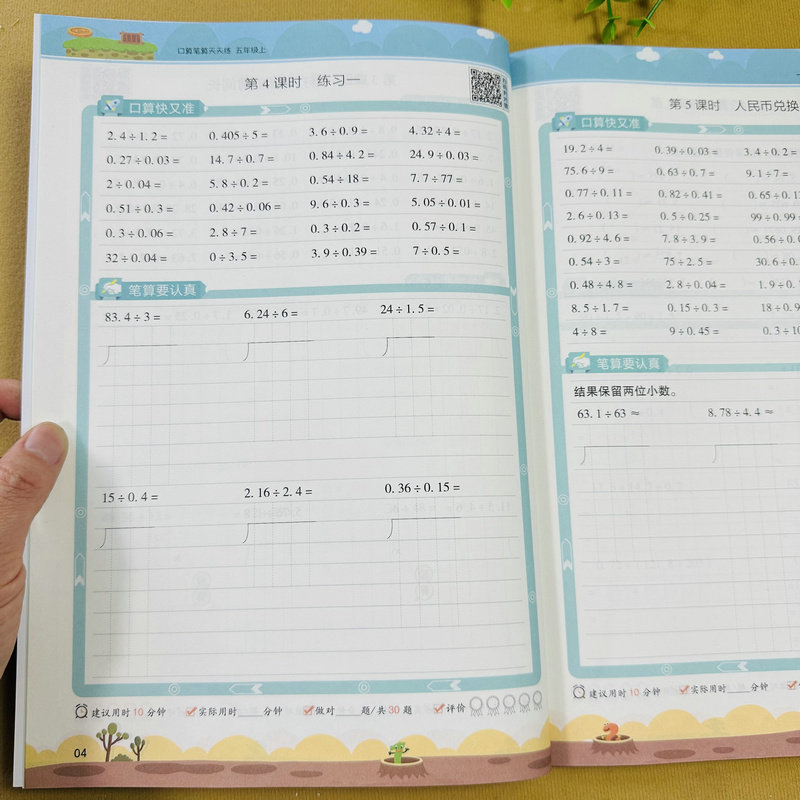 口算笔算天天练 五年级上
第4课时 练习一
口算快又准
2.4÷1.2= 0.405÷5= 3.6÷0.9= 4.32÷4=
0.27÷0.03= 14.7÷0.7= 0.84÷4.2= 24.9÷0.03=
2÷0.04= 5.8÷0.2= 0.54÷18= 7.7÷77=
0.51÷0.3= 0.42÷0.06= 9.6÷0.3= 5.05÷0.01=
0.3÷0.06= 2.8÷7= 0.3÷0.2= 0.57÷0.1=
32÷0.04= 0÷3.5= 3.9÷0.39= 7÷0.5=
笔算要认真
83.4÷3= 6.24÷6= 24÷1.5=
15÷0.4= 2.16÷2.4= 0.36÷0.15=
建议用时10分钟 实际用时___分钟 做对___题/共30题 评价
04
第5课时 人民币兑换
口算快又准
19.2÷4= 0.39÷0.03= 3.4÷0.2=
75.6÷9= 0.63÷0.7= 9.1÷7=
0.77÷0.11= 0.82÷0.41= 0.65÷0.1
2.6÷0.13= 0.5÷0.25= 99÷0.99
0.92÷4.6= 7.8÷3.9= 0.56÷0.
0.54÷3= 75÷2.5= 30.6÷0.
0.48÷4.8= 2.8÷0.04= 1.9÷0.
8.5÷1.7= 0.15÷0.3= 18÷0.9
4÷8= 9÷0.45= 0.3÷10
笔算要认真
结果保留两位小数。
63.1÷63≈ 8.78÷4.4≈
建议用时10分钟 实际用时___分钟